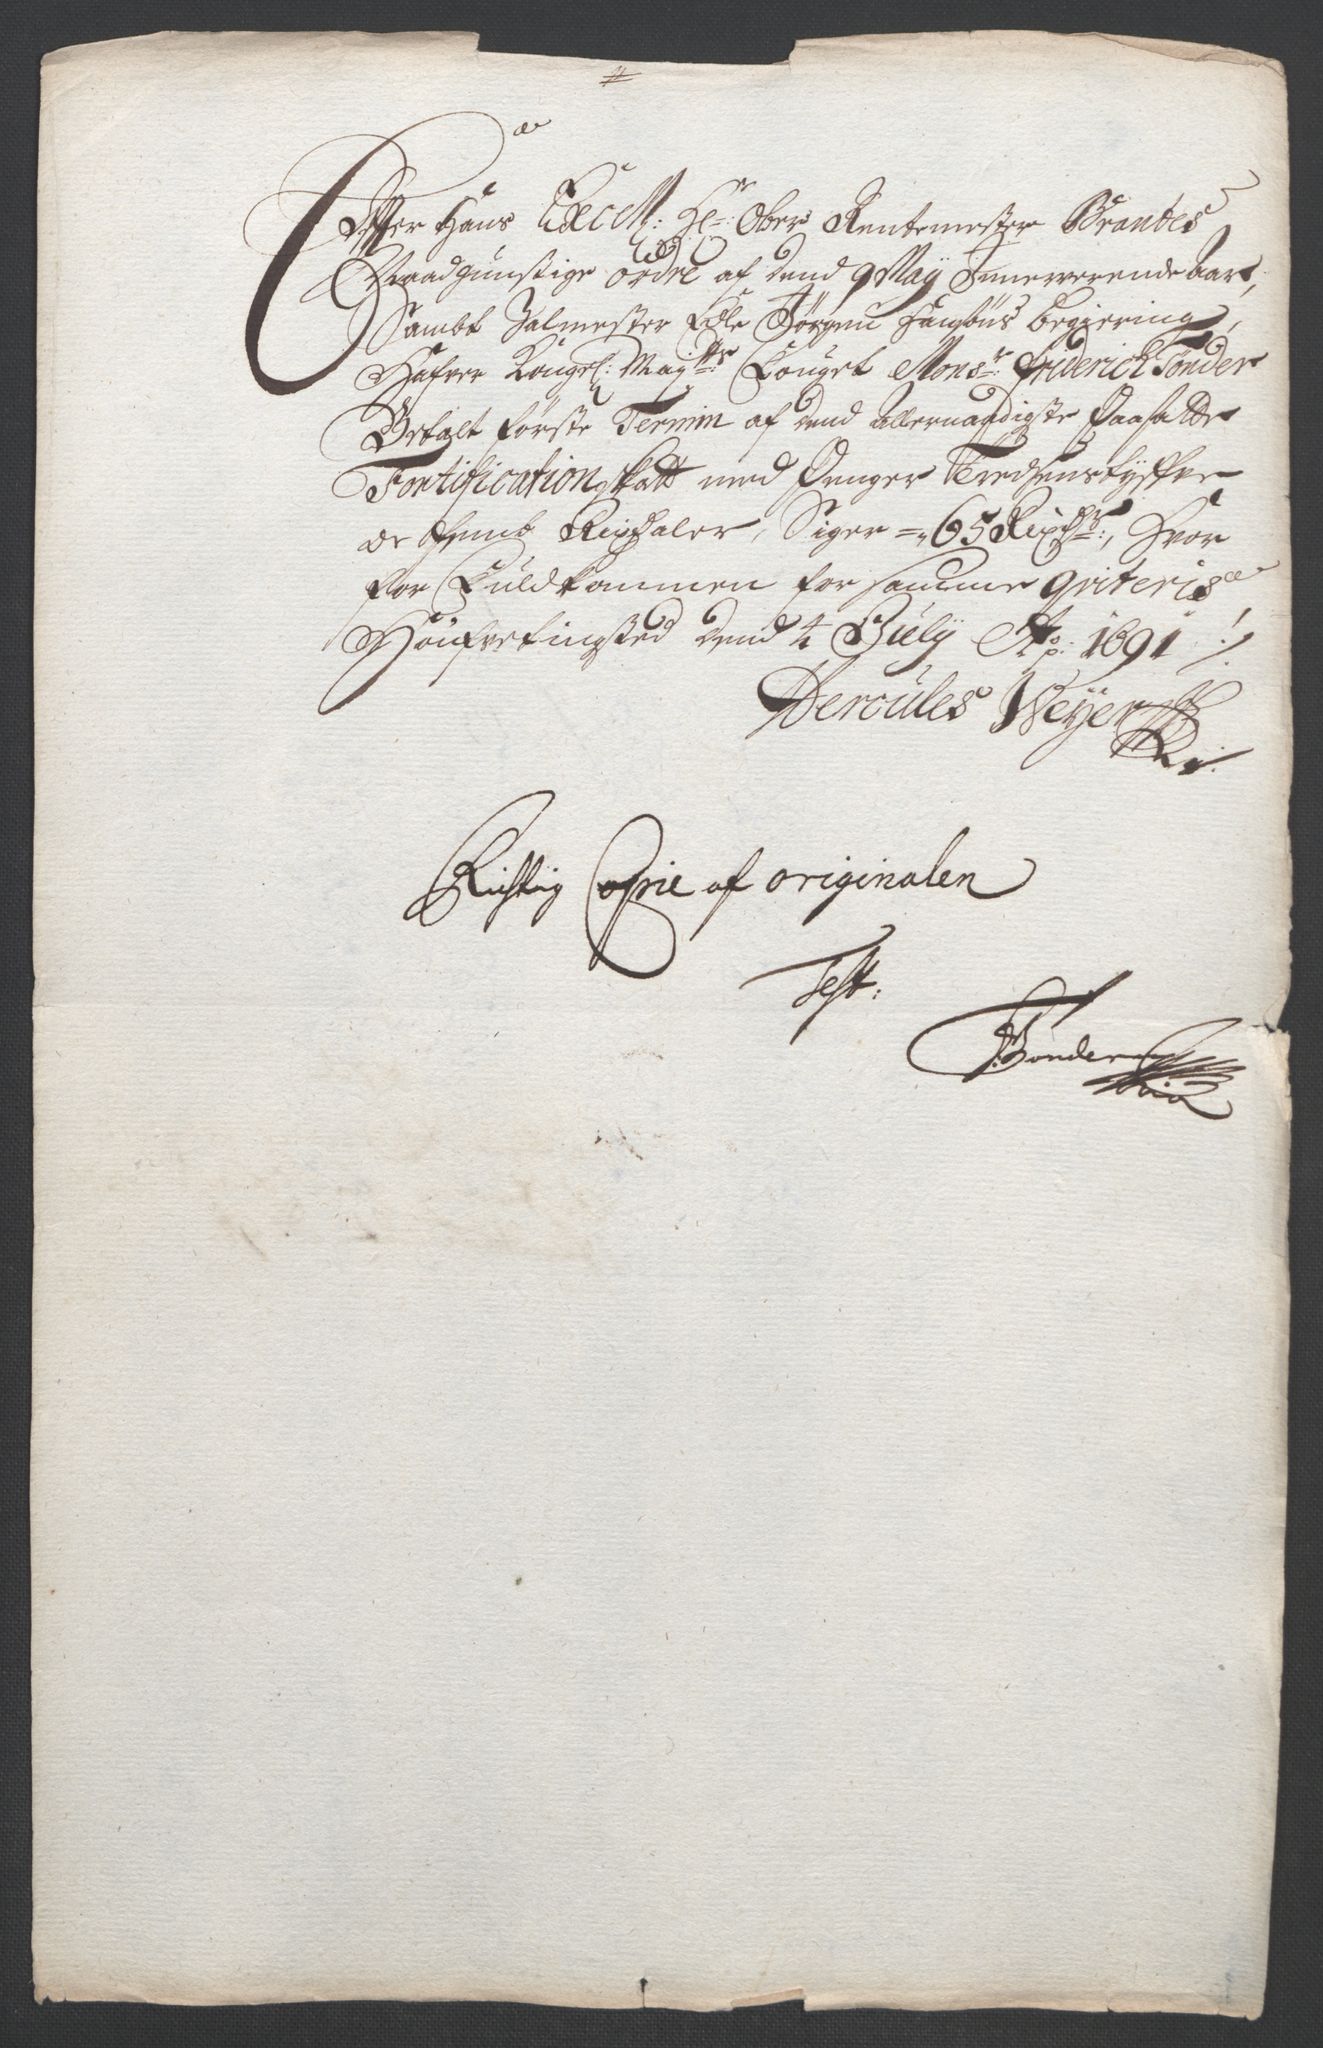 Effter Hans Excell: Hr: Ober Rentemester Brandtes
Naadgunstige ordre af dend 9 May Inneverende aar,
Sambt Zalmester Edle Jørgen begiering,
Hafver Kongel: Mayts: Fouget Monsr: Friderich Tonder
Betalt første Termin af dend allernaadigste Paasatte
Fortification skatt med Penger Tredsenstyffve
oc femb Rixdaler, Siger = 65 Rixdr:, Hvor
for Fuldkommen for samme qviteris
tingsted dend 4 July Ao: 1691 ./.
Hercules Weyer
Rigtig Copie af originalen
Test:
FTönder